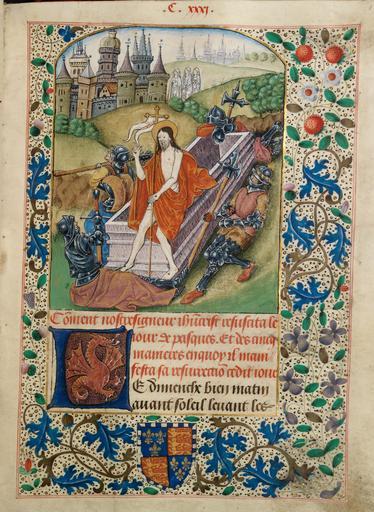 .C. xxxi.
Coment nostreseigneur ihucrist resuscita le
iour de pasques. Et des cincq
manieres enquoy il mani
festa sa resurrection cedit iour
Le dimenche bien matin
auant soleil leuant les